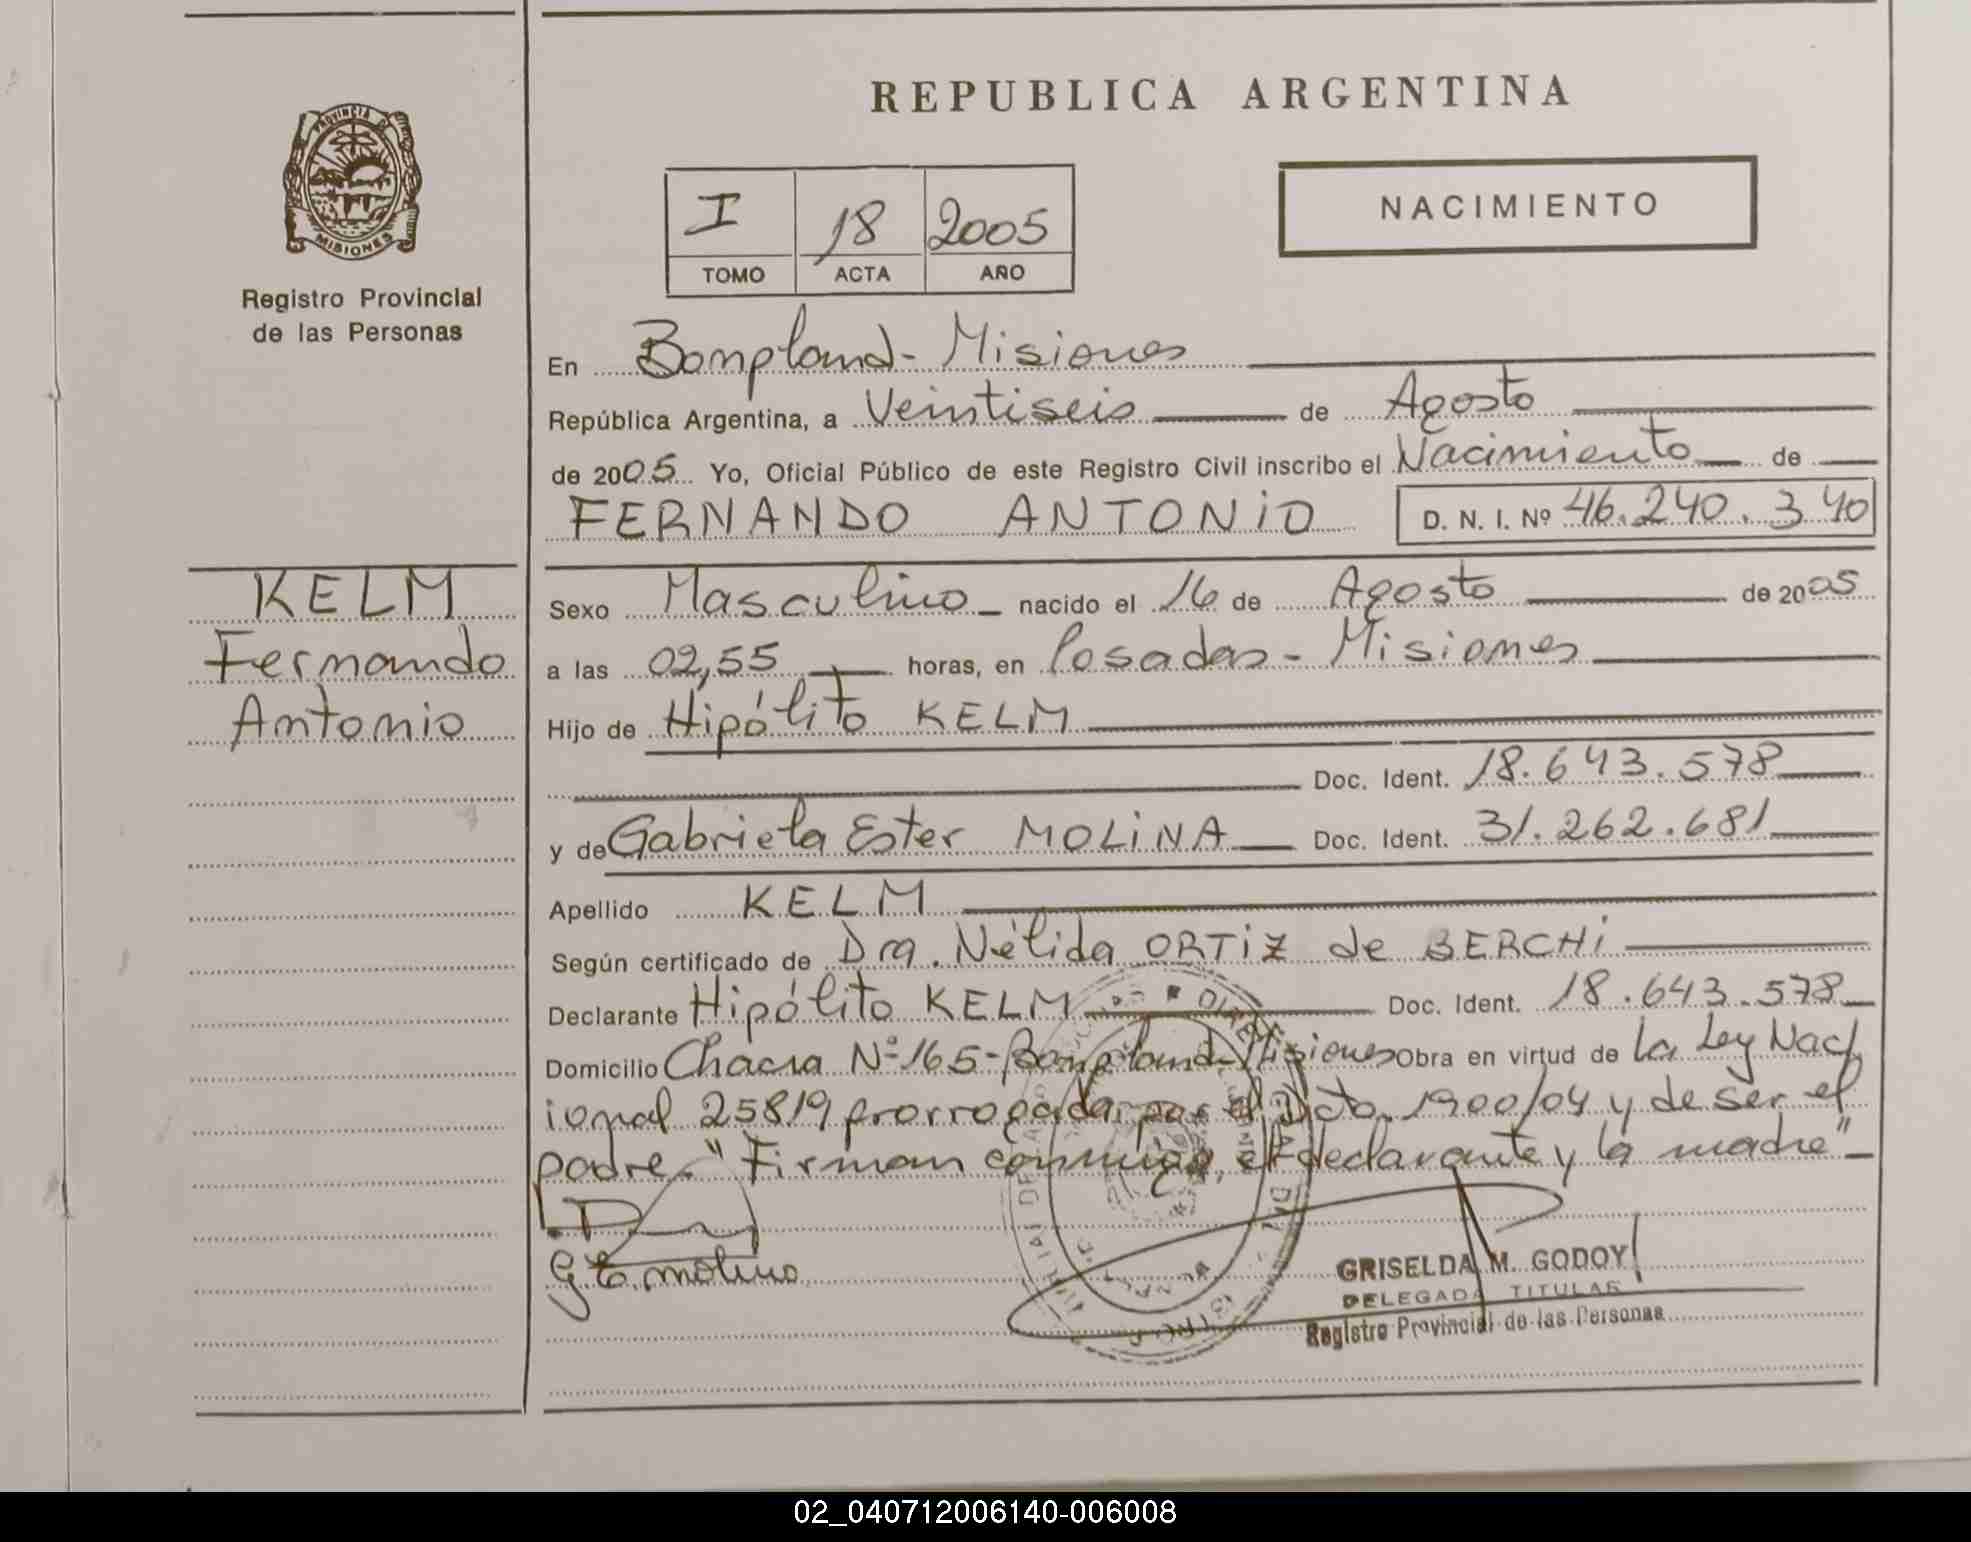 REPUBLICA ARGENTINA
PROVINCIA DE
MISIONES
Registro Provincial
de las Personas
I 18 2005
TOMO ACTA AÑO
NACIMIENTO
En Bompland - Misiones
República Argentina, a Veintiseis de Agosto
de 2005 Yo, Oficial Público de este Registro Civil inscribo el Nacimiento de
FERNANDO ANTONIO D. N. I. Nº 46.240.340
KELM
Fernando
Antonio
Sexo Masculino nacido el 16 de Agosto de 2005
a las 02,55 horas, en Posadas - Misiones
Hijo de Hipólito KELM
Doc. Ident. 18.643.578
y de Gabriela Ester MOLINA Doc. Ident. 31.262.681
Apellido KELM
Según certificado de Dra. Nélida ORTIZ de BERCHI
Declarante Hipólito KELM Doc. Ident. 18.643.578
Domicilio Chacra Nº 165 - Bompland - Misiones Obra en virtud de la Ley Nac
ional 25819 prorrogada por el Dcto. 1900/04 y de ser el
padre. "Firman conmigo, el declarante y la madre"
G E molina
GRISELDA M. GODOY
DELEGADA TITULAR
Registro Provincial de las Personas
02_040712006140-006008